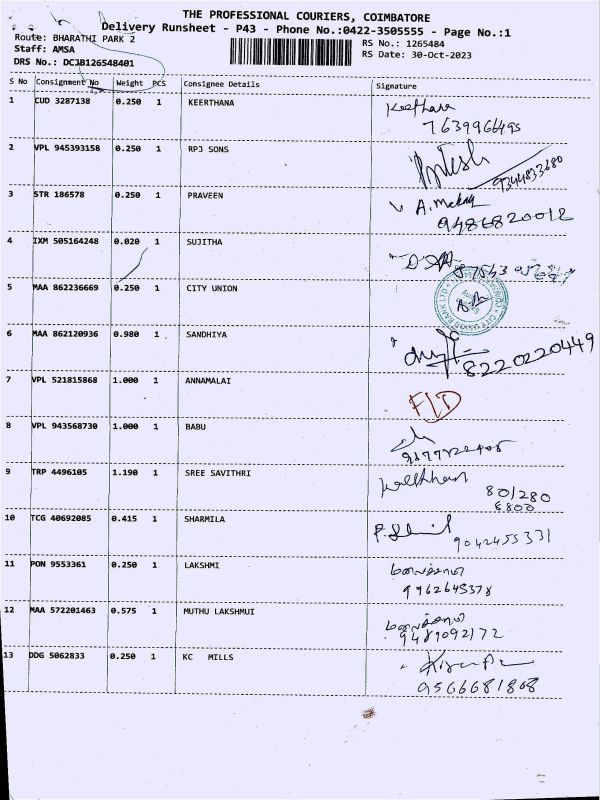 THE PROFESSIONAL COURIERS, COIMBATORE
Delivery Runsheet - P43 - Phone No.:0422-3505555 - Page No.:1
Route: BHARATHI PARK 2
RS No.: 1265484
Staff: AMSA
RS Date: 30-Oct-2023
DRS No.: DCJB126548401
S No Consignment No Weight PCS Consignee Details Signature
1 CUD 3287138 0.250 1 KEERTHANA Keerthana
7639966495
2 VPL 945393158 0.250 1 RPJ SONS
9344833680
3 STR 186578 0.250 1 PRAVEEN
9486820012
4 IXM 505164248 0.020 1 SUJITHA
5 MAA 862236669 0.250 1 CITY UNION
6 MAA 862120936 0.980 1 SANDHIYA
8220220449
7 VPL 521815868 1.000 1 ANNAMALAI
8 VPL 943568730 1.000 1 BABU
9 TRP 4496105 1.190 1 SREE SAVITHRI
801280
6800
10 TCG 40692085 0.415 1 SHARMILA
9042455331
11 PON 9553361 0.250 1 LAKSHMI
9962645378
12 MAA 572201463 0.575 1 MUTHU LAKSHMUI
9489092172
13 DDG 5062833 0.250 1 KC MILLS
9566681868